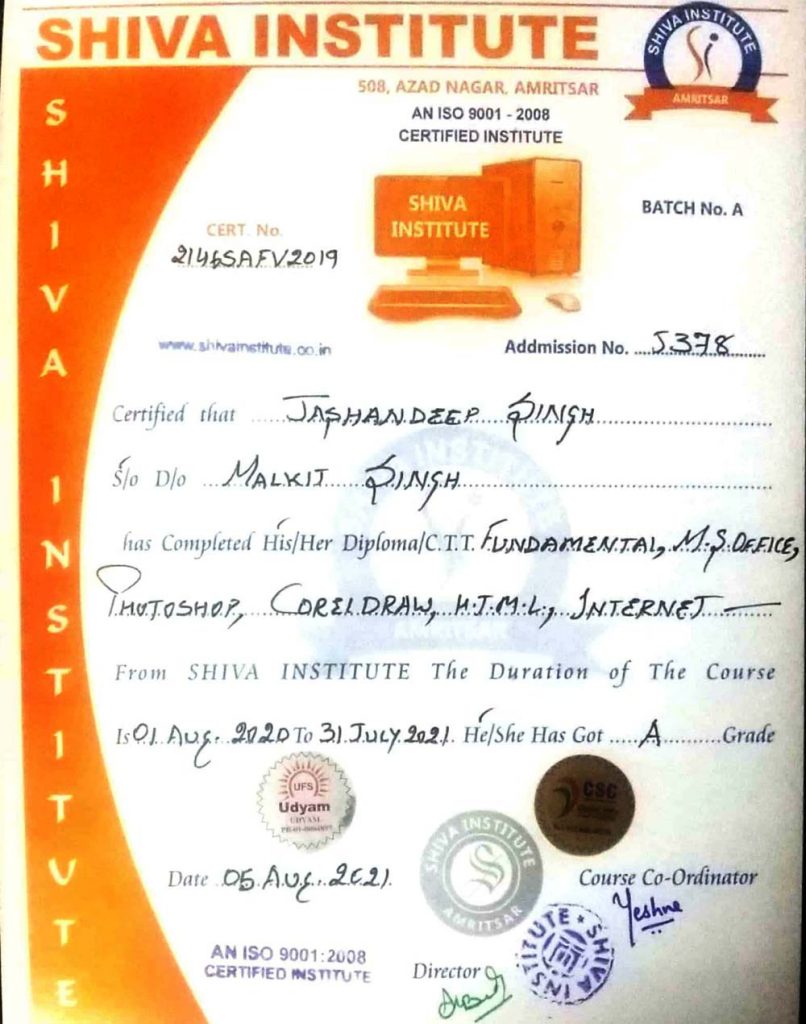 SHIVA INSTITUTE
SHIVA INSTITUTE
AMRITSAR
508, AZAD NAGAR, AMRITSAR
AN ISO 9001 - 2008
CERTIFIED INSTITUTE
SHIVA INSTITUTE
SHIVA
INSTITUTE
BATCH No. A
CERT. No.
2146SAFV2019
www.shivainstitute.co.in
Addmission No. 5378
Certified that JASHANDEEP SINGH
S/o D/o MALKIT SINGH
has Completed His/Her Diploma/C.T.T. FUNDAMENTAL, M.S.OFFICE,
PHOTOSHOP, CORELDRAW, H.T.M.L., INTERNET
From SHIVA INSTITUTE The Duration of The Course
Is 01 Aug. 2020 To 31 July 2021. He/She Has Got A Grade
UFS
Udyam
UDYAM
CSC
SHIVA INSTITUTE
AMRITSAR
Date 05 Aug. 2021.
Course Co-Ordinator
Yeshna
SHIVA INSTITUTE
AN ISO 9001:2008
CERTIFIED INSTITUTE
Director